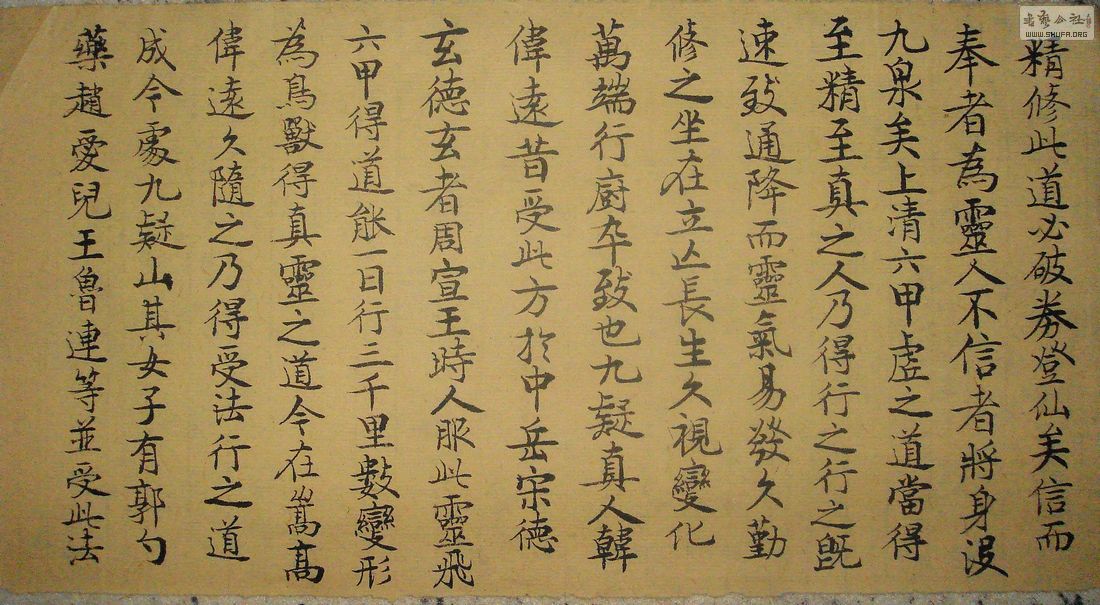 精修此道必破券登仙矣信而
奉者為靈人不信者將身没
九泉矣上清六甲虛之道當得
至精至真之人乃得行之行之既
速致通降而靈氣易發久勤
修之坐在立亾長生久視變化
萬端行廚卒致也九疑真人韓
偉遠昔受此方於中岳宋德
玄德玄者周宣王時人服此靈飛
六甲得道能一日行三千里數變形
為鳥獸得真靈之道今在嵩高
偉遠久隨之乃得受法行之道
成今處九疑山其女子有郭勺
藥趙愛兒王魯連等並受此法
WWW.SHUFA.ORG